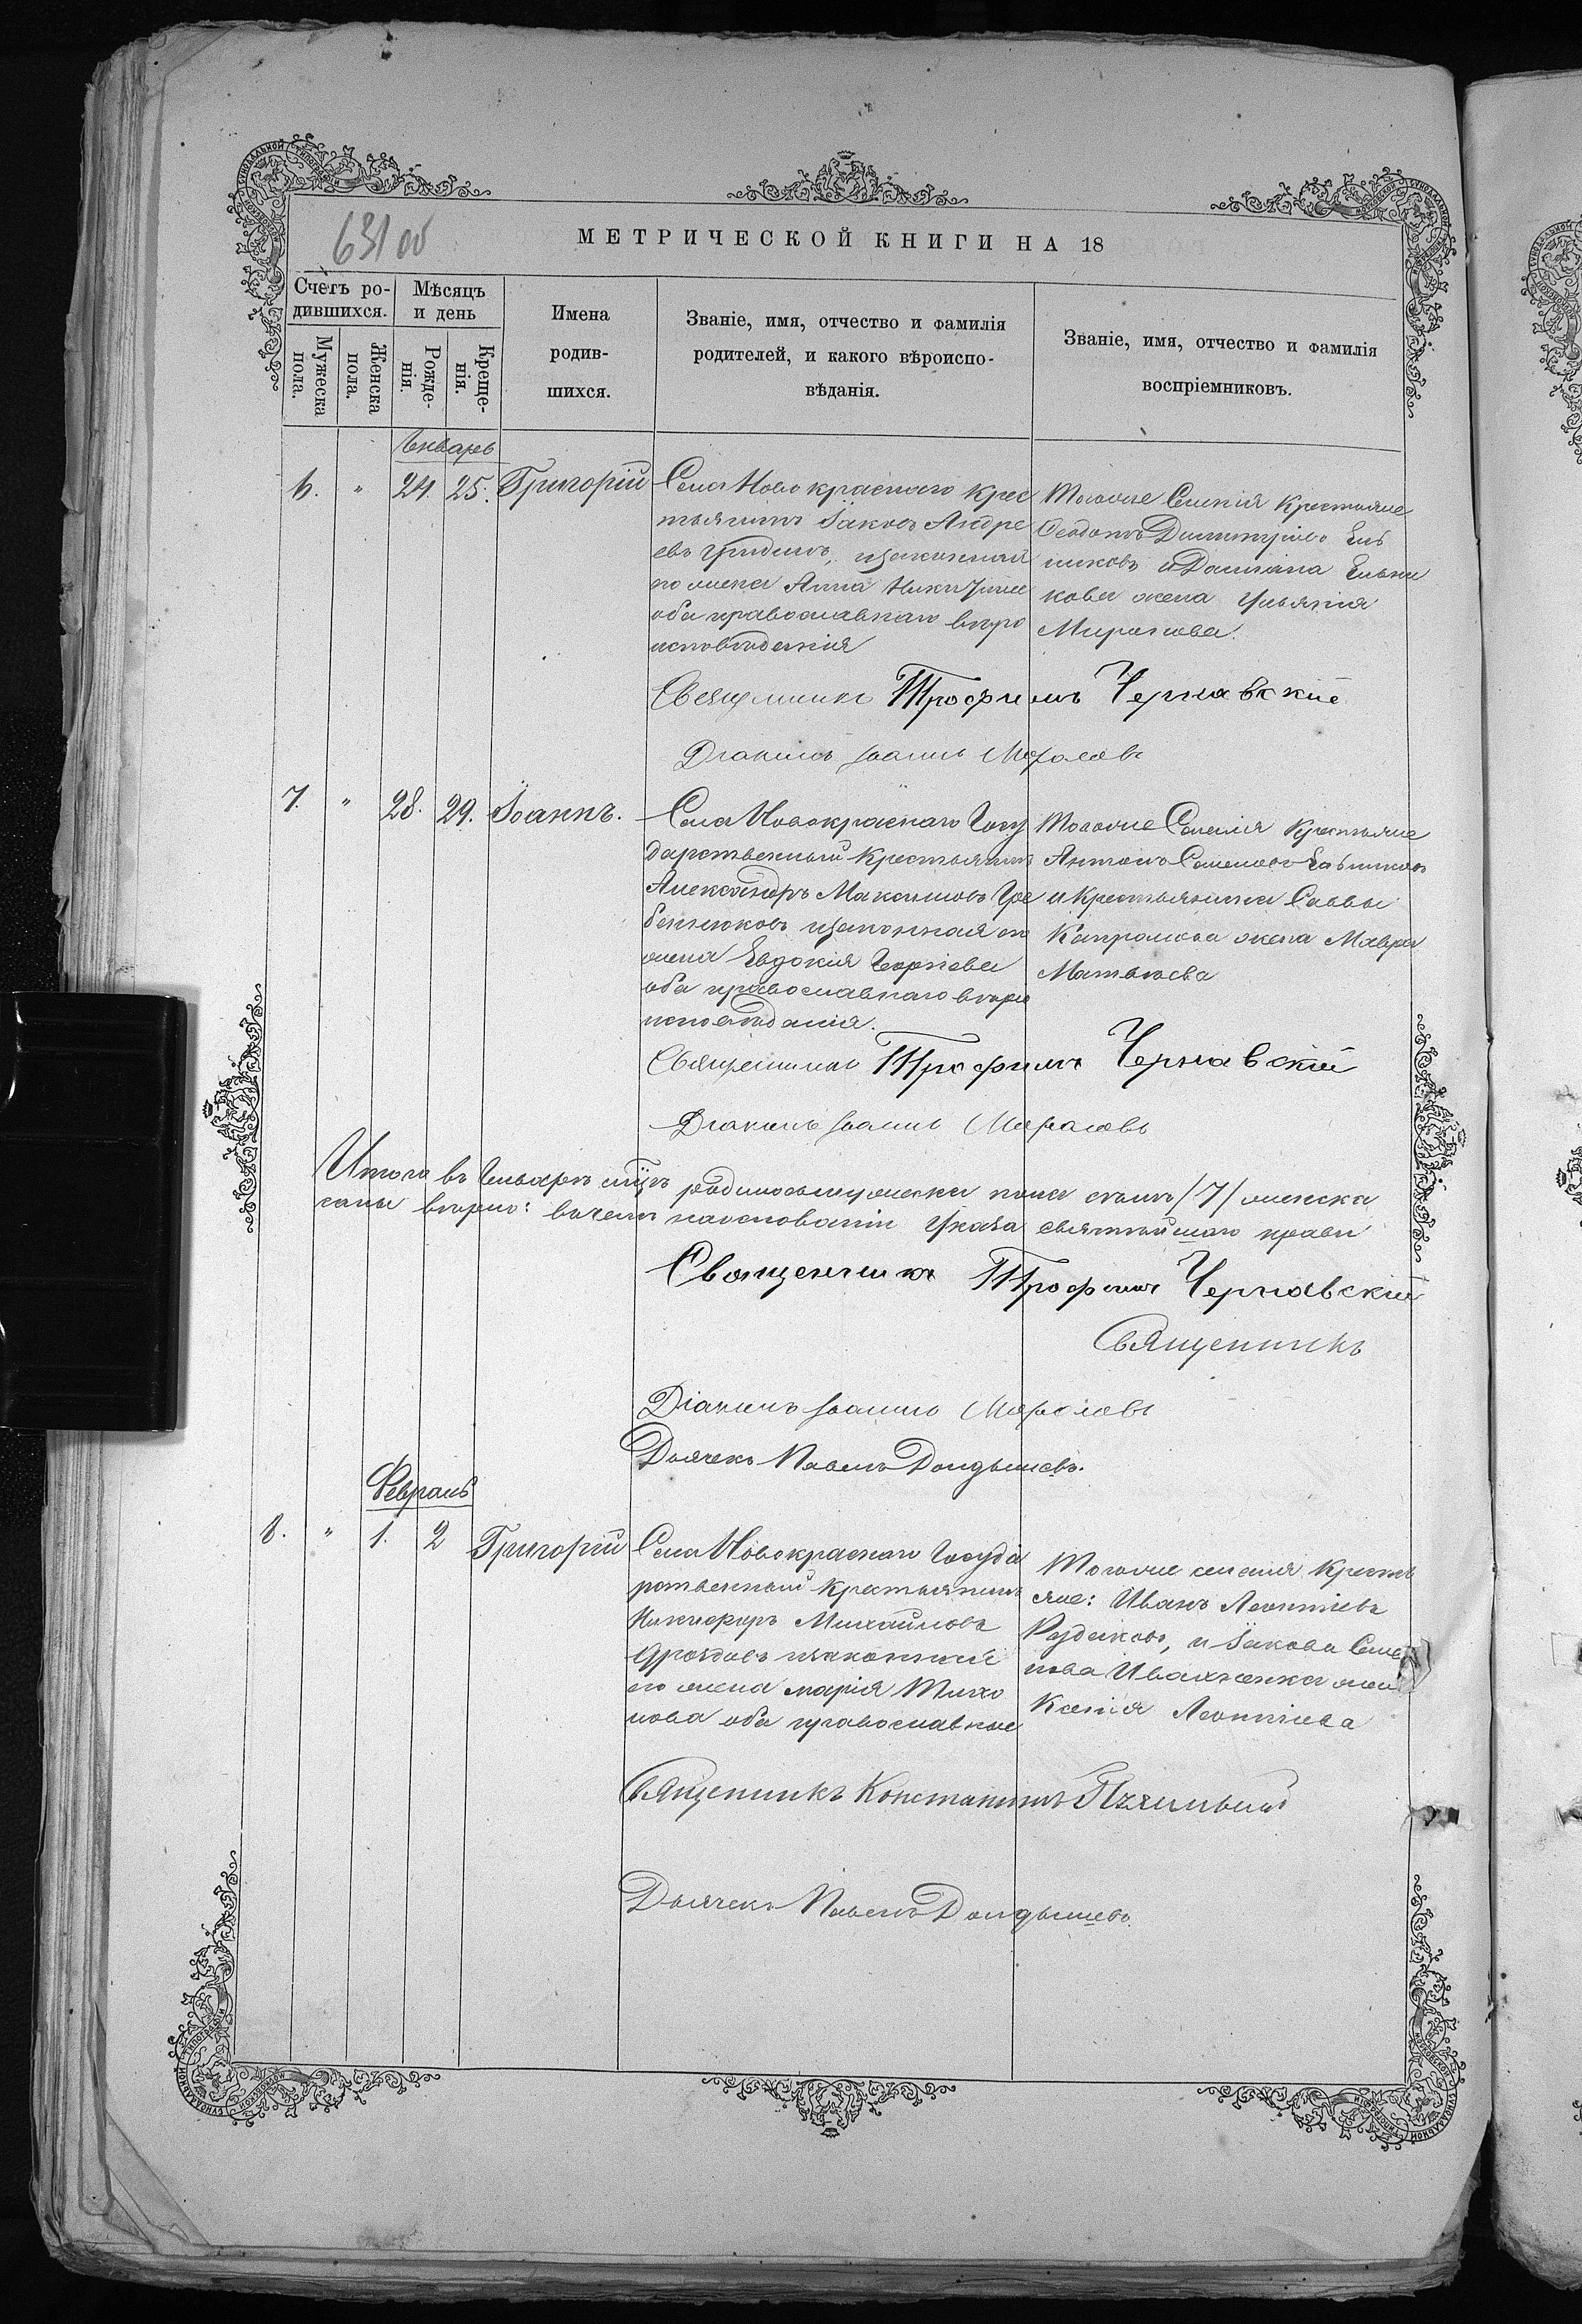 631 об
МЕТРИЧЕСКОЙ КНИГИ НА 18
Счетъ ро-
дившихся.
Мужеска
пола.
Женска
пола.
Мѣсяцъ
и день
Рожде-
нія.
Креще-
нія.
Имена
родив-
шихся.
Званіе, имя, отчество и фамилія
родителей, и какого вѣроиспо-
вѣданія.
Званіе, имя, отчество и фамилія
воспріемниковъ.
Январь
6. " 24. 25. Григорій
Села Новокраснаго крес
тьянинъ Іаковъ Андре
евъ изаконная
его жена Анна
оба православнаго вѣро
исповѣданія
Тогоже Селенія Крестьяне
Ѳеодотъ Димитріевъ Ель
никовъ и Даміана Ельни
кова жена Ульянія
Миронова.
Священникъ Трофимъ Чернавскій
Діаконъ Іоаннъ Морозовъ
7. " 28. 29. Іоаннъ.
Села Новокраснаго Госу
дарственный Крестьянинъ
Александръ Максимовъ Гре
бенюковъ изаконная его
жена Евдокія Георгіева
оба православнаго вѣро
исповѣданія.
Тогоже Селенія Крестьяне
Антонъ Семеновъ Ельниковъ
и Крестьянина Саввы
жена Мавра
Матвѣева
Священникъ Трофимъ Чернавскій
Діаконъ Іоаннъ Морозовъ
Итого въ Генварѣ родилось мужеска пола семь /7/ женска
саны вѣрно: въ чемъ наоснованіи Указа святѣйшаго прави
Священникъ Трофимъ Чернавскій
Священникъ
Діаконъ Іоаннъ Морозовъ
Дьячекъ Павелъ
Февраль
8. " 1. 2 Григорій
Села Новокраснаго Госуда
рственный Крестьянинъ
Никифоръ Михайловъ
Дроздовъ изаконная
его жена Марія Тихо
нова оба православные
Тогоже селенія Кресть
яне: Иванъ Леонтіевъ
и Іакова Семе
нова Иваненка жена
Ксенія Леонтіева
Священникъ Константинъ
Дьячекъ Павелъ